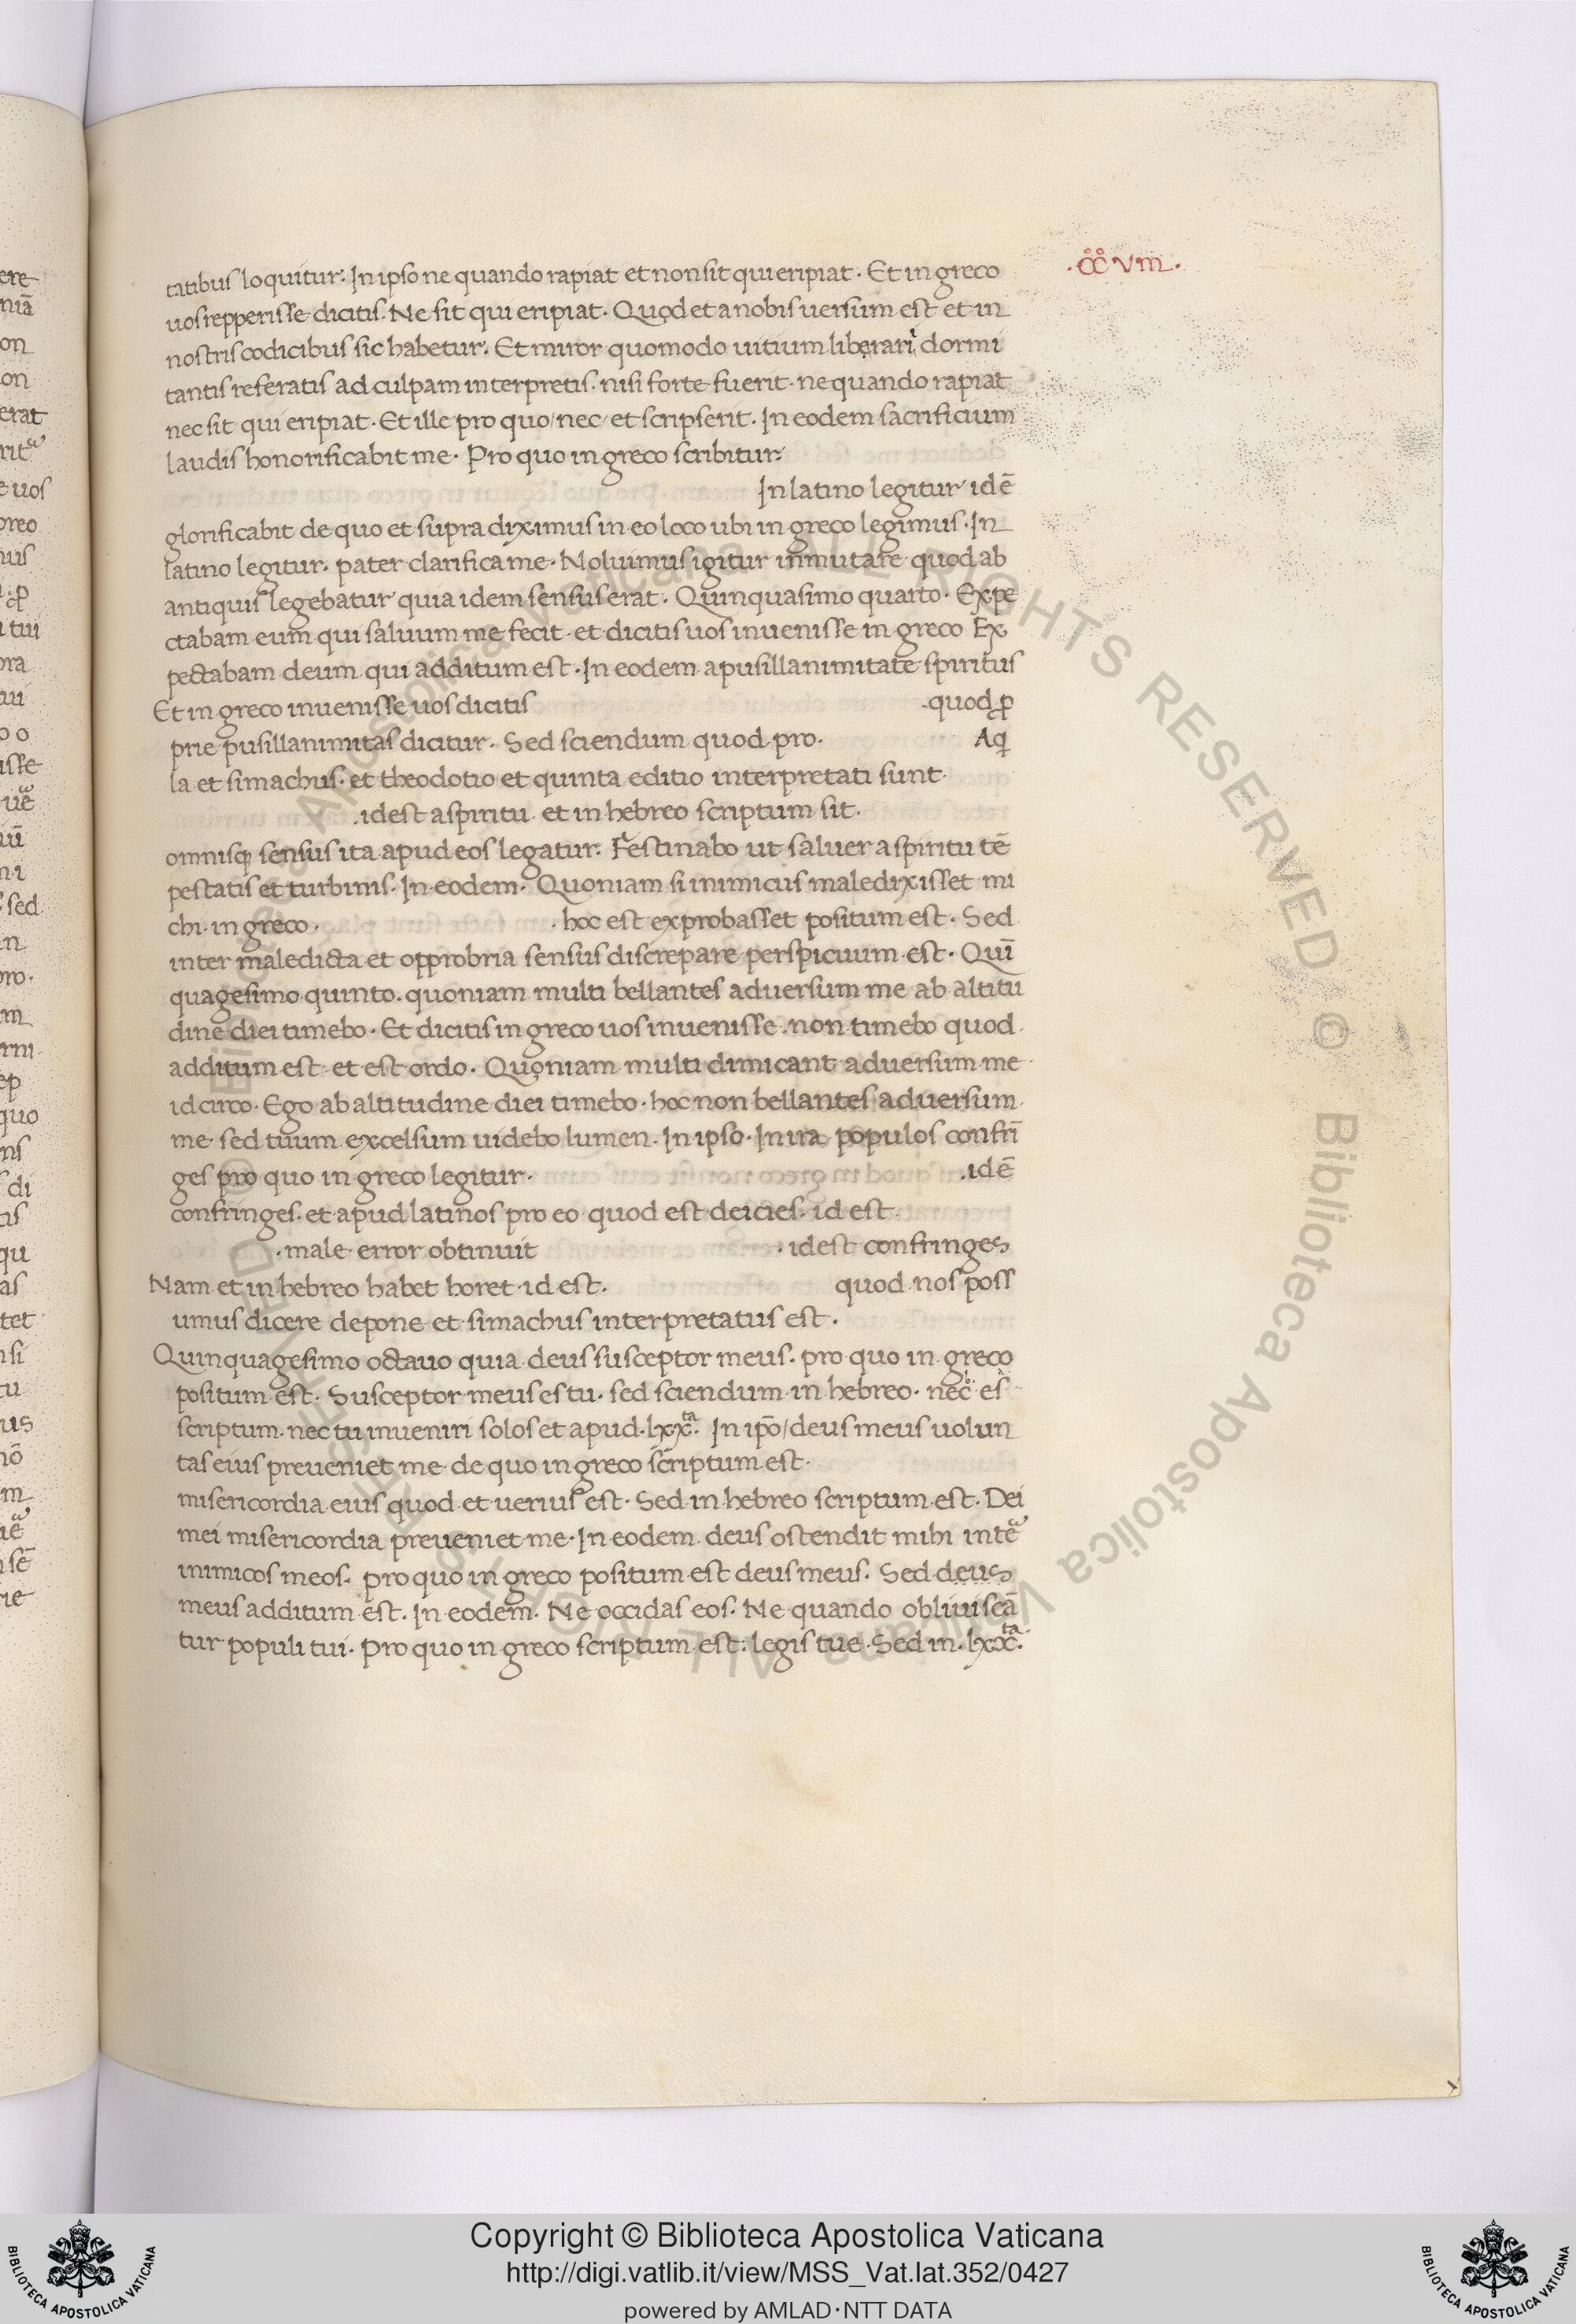 .CCVIII.
tatibus loquitur. In ipso ne quando rapiat et non sit qui eripiat. Et in greco
uos repperisse dicitis. Ne sit qui eripiat. Quod et a nobis uersum est et in
nostris codicibus sic habetur. Et miror quomodo uitium liberari dormi
tantis referatis ad culpam interpretis. nisi forte fuerit. ne quando rapiat
nec sit qui eripiat. Et ille pro quo/nec/et scripserit. In eodem sacrificium
laudis honorificabit me. Pro quo in greco scribitur.
In latino legitur idē
glorificabit de quo et supra diximus in eo loco ubi in greco legimus. In
latino legitur. pater clarifica me. Noluimus igitur inmutare quod ab
antiquis legebatur quia idem sensus erat. Quinquasimo quarto. Expe
ctabam eum qui saluum me fecit. et dicitis uos inuenisse in greco Ex
pectabam deum qui additum est. In eodem a pusillanimitate spiritus
Et in greco inuenisse uos dicitis .quod ꝓ
prie pusillanimitas dicitur. Sed sciendum quod pro. Aq
la et simachus. et theodotio et quinta editio interpretati sunt.
.idest a spiritu et in hebreo scriptum sit.
omnisq; sensus ita apud eos legatur. Festinabo ut saluer a spiritu tē
pestatis et turbinis. In eodem. Quoniam si inimicus maledixisset mi
chi. in greco. . hoc est exprobasset positum est. Sed
inter maledicta et opprobria sensus discrepare perspicuum est. Quī
quagesimo quinto. quoniam multi bellantes aduersum me ab altitu
dine diei timebo. Et dicitis in greco uos inuenisse. non timebo quod
additum est et est ordo. Quoniam multi dimicant aduersum me
idcirco. Ego ab altitudine diei timebo. hoc non bellantes aduersum
me sed tuum excelsum uidebo lumen. In ipso. In ira populos confrī
ges pro quo in greco legitur. .idē
confringes. et apud latinos pro eo quod est deicies. id est
.male error obtinuit . idest confringes
Nam et in hebreo habet horet. id est. quod nos poss
umus dicere depone et simachus interpretatus est.
Quinquagesimo octauo quia deus susceptor meus. pro quo in greco
positum est. Susceptor meus es tu. sed sciendum in hebreo. nec es
scriptum. nec tu inueniri solos et apud. lxx.ta In ip̄o/deus meus uolun
tas eius preueniet me de quo in greco scriptum est.
misericordia eius quod et uerius est. Sed in hebreo scriptum est. Dei
mei misericordia preueniet me. In eodem. deus ostendit mihi inte
inimicos meos. pro quo in greco positum est deus meus. Sed deus
meus additum est. In eodem. Ne occidas eos. Ne quando obliuiscā
tur populi tui. Pro quo in greco scriptum est: legis tue. Sed in. lxx.ta
Copyright © Biblioteca Apostolica Vaticana
http://digi.vatlib.it/view/MSS_Vat.lat.352/0427
powered by AMLAD·NTT DATA